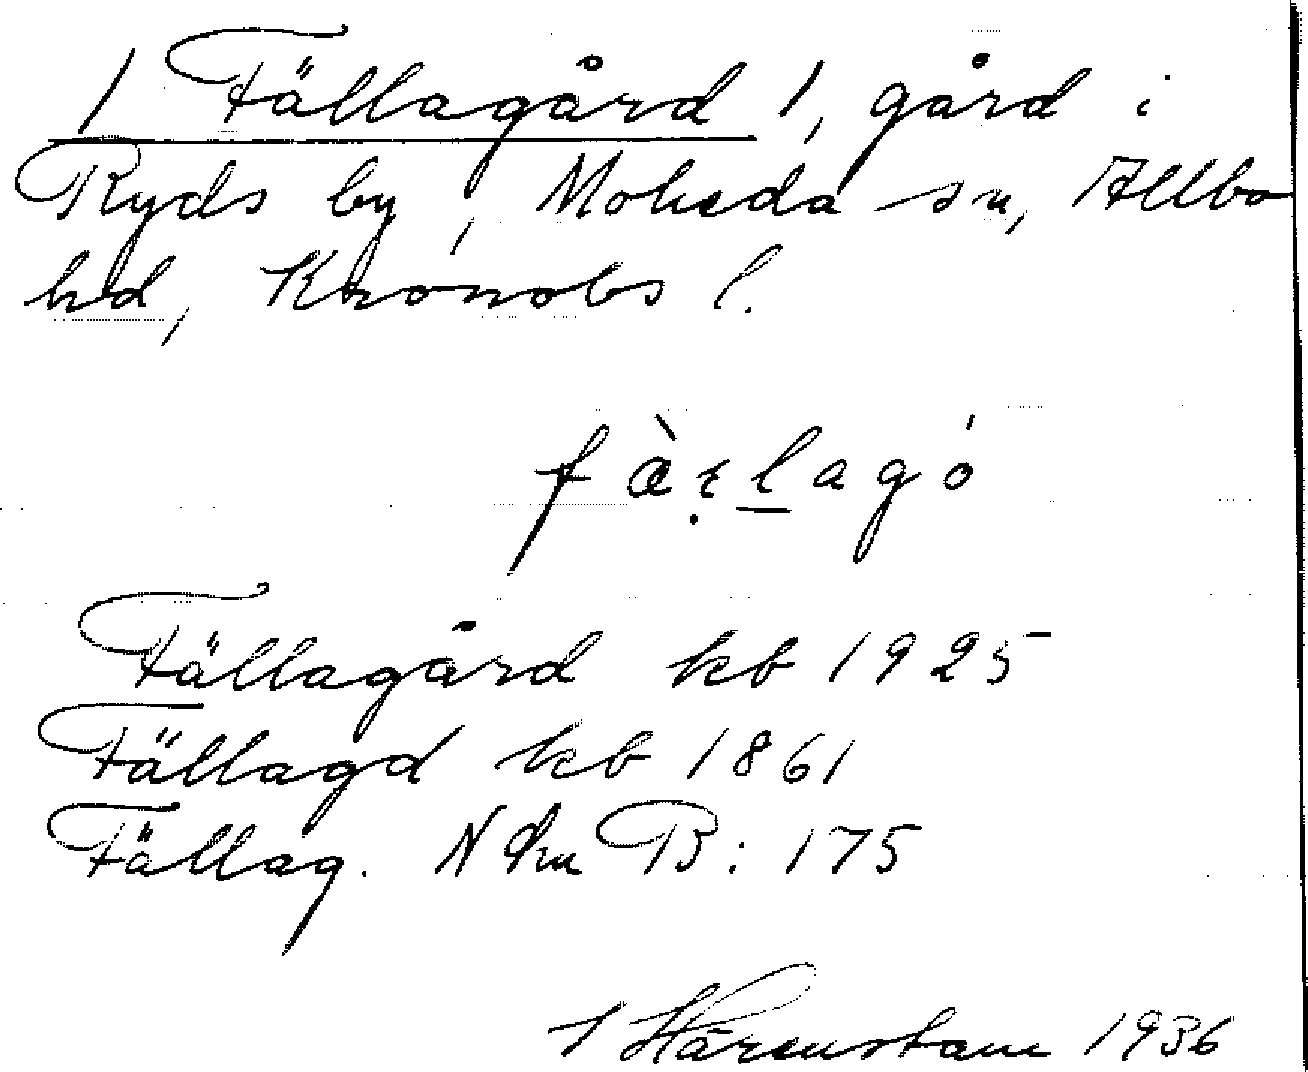 1 Fällagård 1, gård i
Ryds by, Moheda sn, Allbo
hd, Kronobs l.
fæ̀ṛl̲agó
Fällagård kb 1925
Fällagd kb 1861
Fällag. N Km B: 175
Härenstam 1936